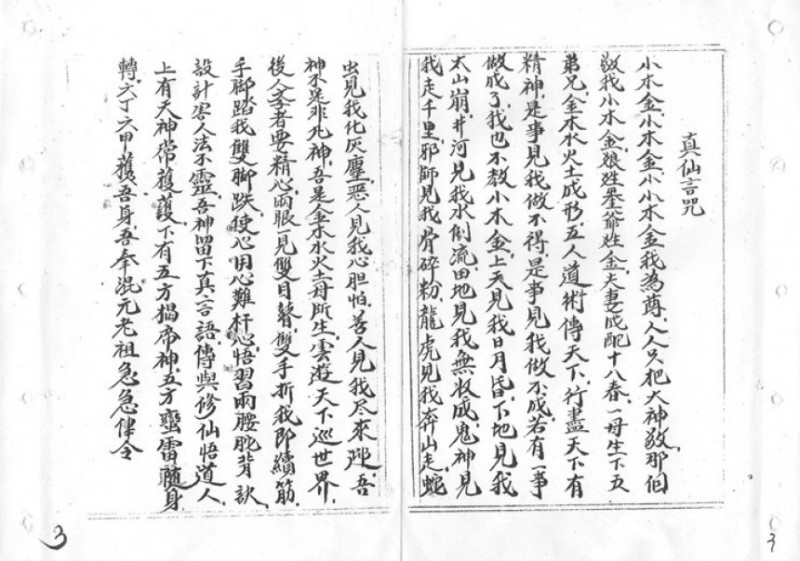 真仙言咒
小木金小木金小小木金我為尊人人只把大神敬那個
敬我小木金娘姓爹姓金夫妻成配十八春一母生下五
弟兄金木水火土成形五人道術傳天下行盡天下有
精神是事見我做不得是事見我做不成若有一事
做成了我也不教小木金上天見我日月昏下地見我
太山崩井河見我水倒流田地見我無收成鬼神見
我走千里邪師見我骨碎粉龍虎見我奔山走蛇
虫見我化灰塵惡人見我心胆怕善人見我尽來迎吾
神不是非凡神吾是金木水火土母所生雲遊天下巡世界
後人奉者要精心兩眼一見雙目瞽雙手折我即續筋
手脚踏我雙脚跌使心用心難杆心悟習兩腰駝背訣
設計客人法不靈吾神留下真言語傳與修仙悟道人
上有天神常護護下有五方揭帝神五方蛮雷隨身
轉六丁六甲護吾身吾奉混元老祖急急律令
3
3